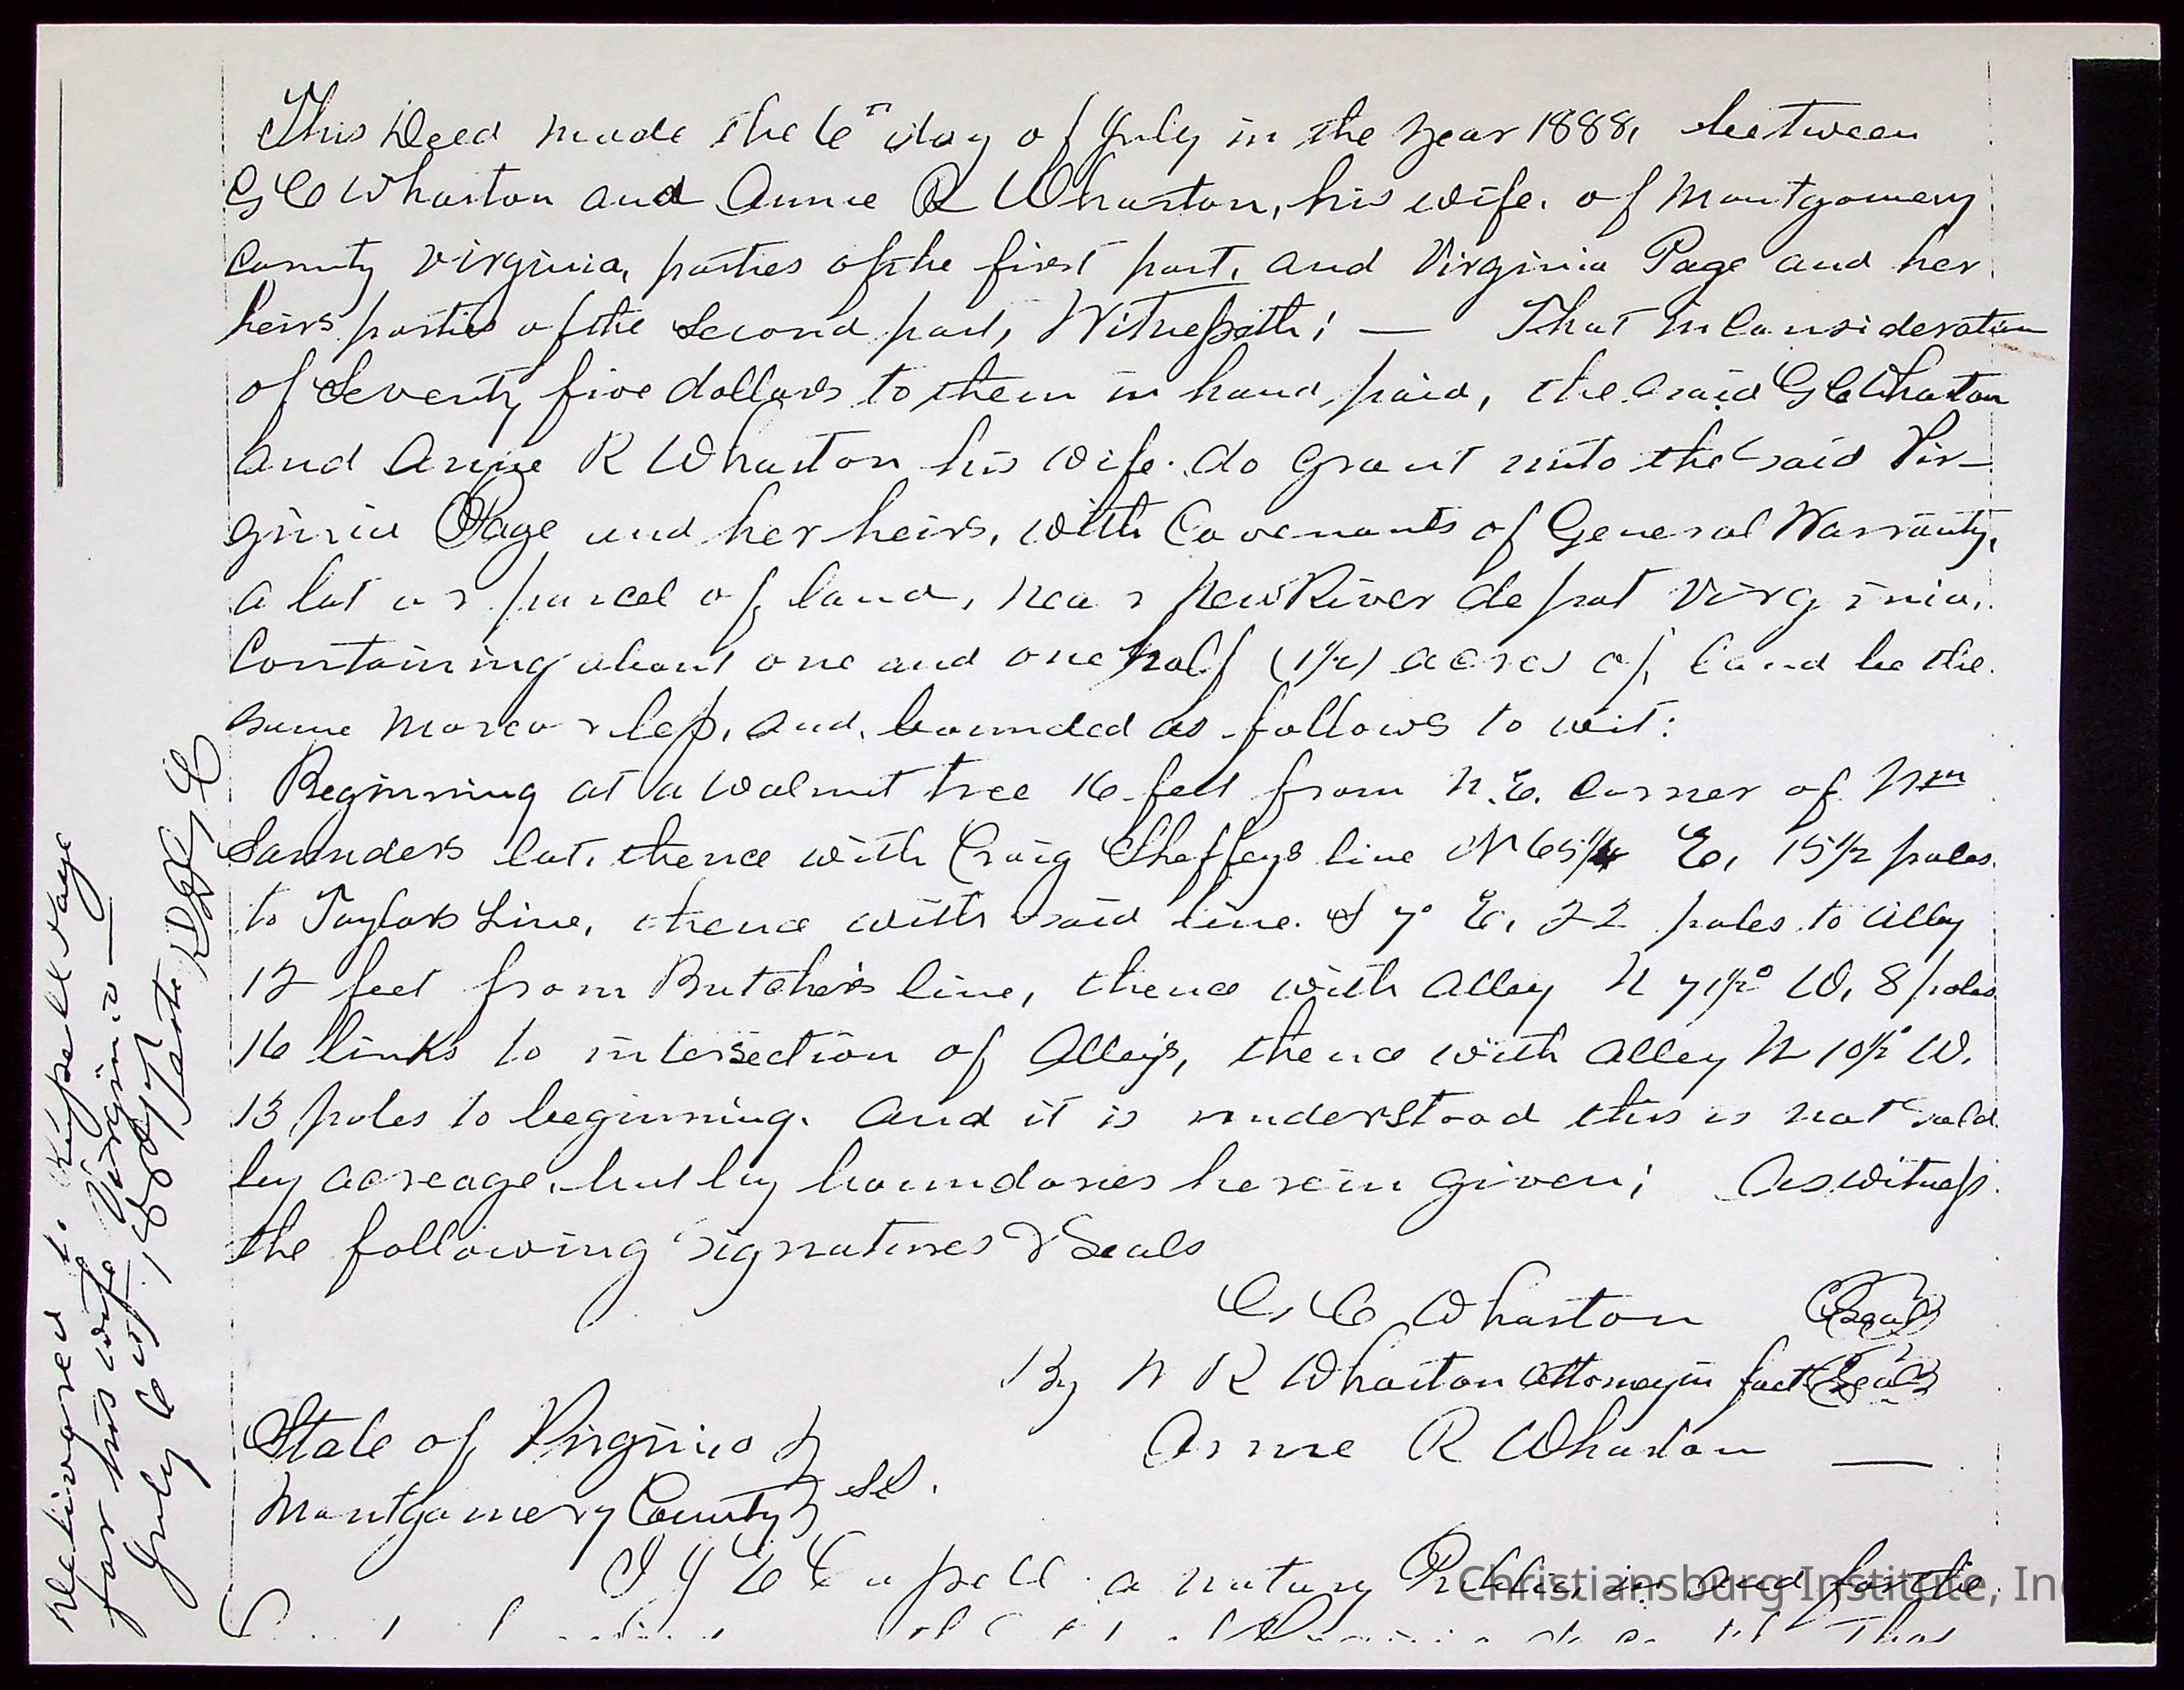 This Deed made the 6th day of July in the year 1888, between
G C Wharton and Annie R Wharton, his wife. of Montgomery
County Virginia, parties of the first part, and Virginia Page and her
heirs parties of the second part, Witnesseth; — That in Consideration
of Seventy five dollars to them in hand paid, the said G C Wharton
and Annie R Wharton his wife. do grant unto the said Vir-
ginia Page and her heirs, with Covenants of General Warranty,
a lot or parcel of land, near New River depot Virginia,
Containing about one and one half (1½) acres of land be the
same more or less, and, bounded as follows to wit:
Beginning at a walnut tree 16 feet from N.E. Corner of Wm
Saunders lot, thence with Craig Sheffeys line N 65¼ E, 15½ poles
to Taylors Line, thence with said line. S 7° E, 22 poles to alley
12 feet from Butchers line, thence with alley N 71½° W, 8 poles
16 links to intersection of Alleys, thence with alley N 10½° W.
13 poles to beginning. and it is understood this is not sold
by acreage, but by boundaries herein given; As witness
the following signatures & Seals
G. C Wharton Seal
By W R Wharton attorney in fact Seal
Annie R Wharton —
State of Virginia
Montgomery County
I a notary Public, in and for the
That
Delivered to Page
for his wife Virginia —
July 6
Christiansburg Institute, Inc